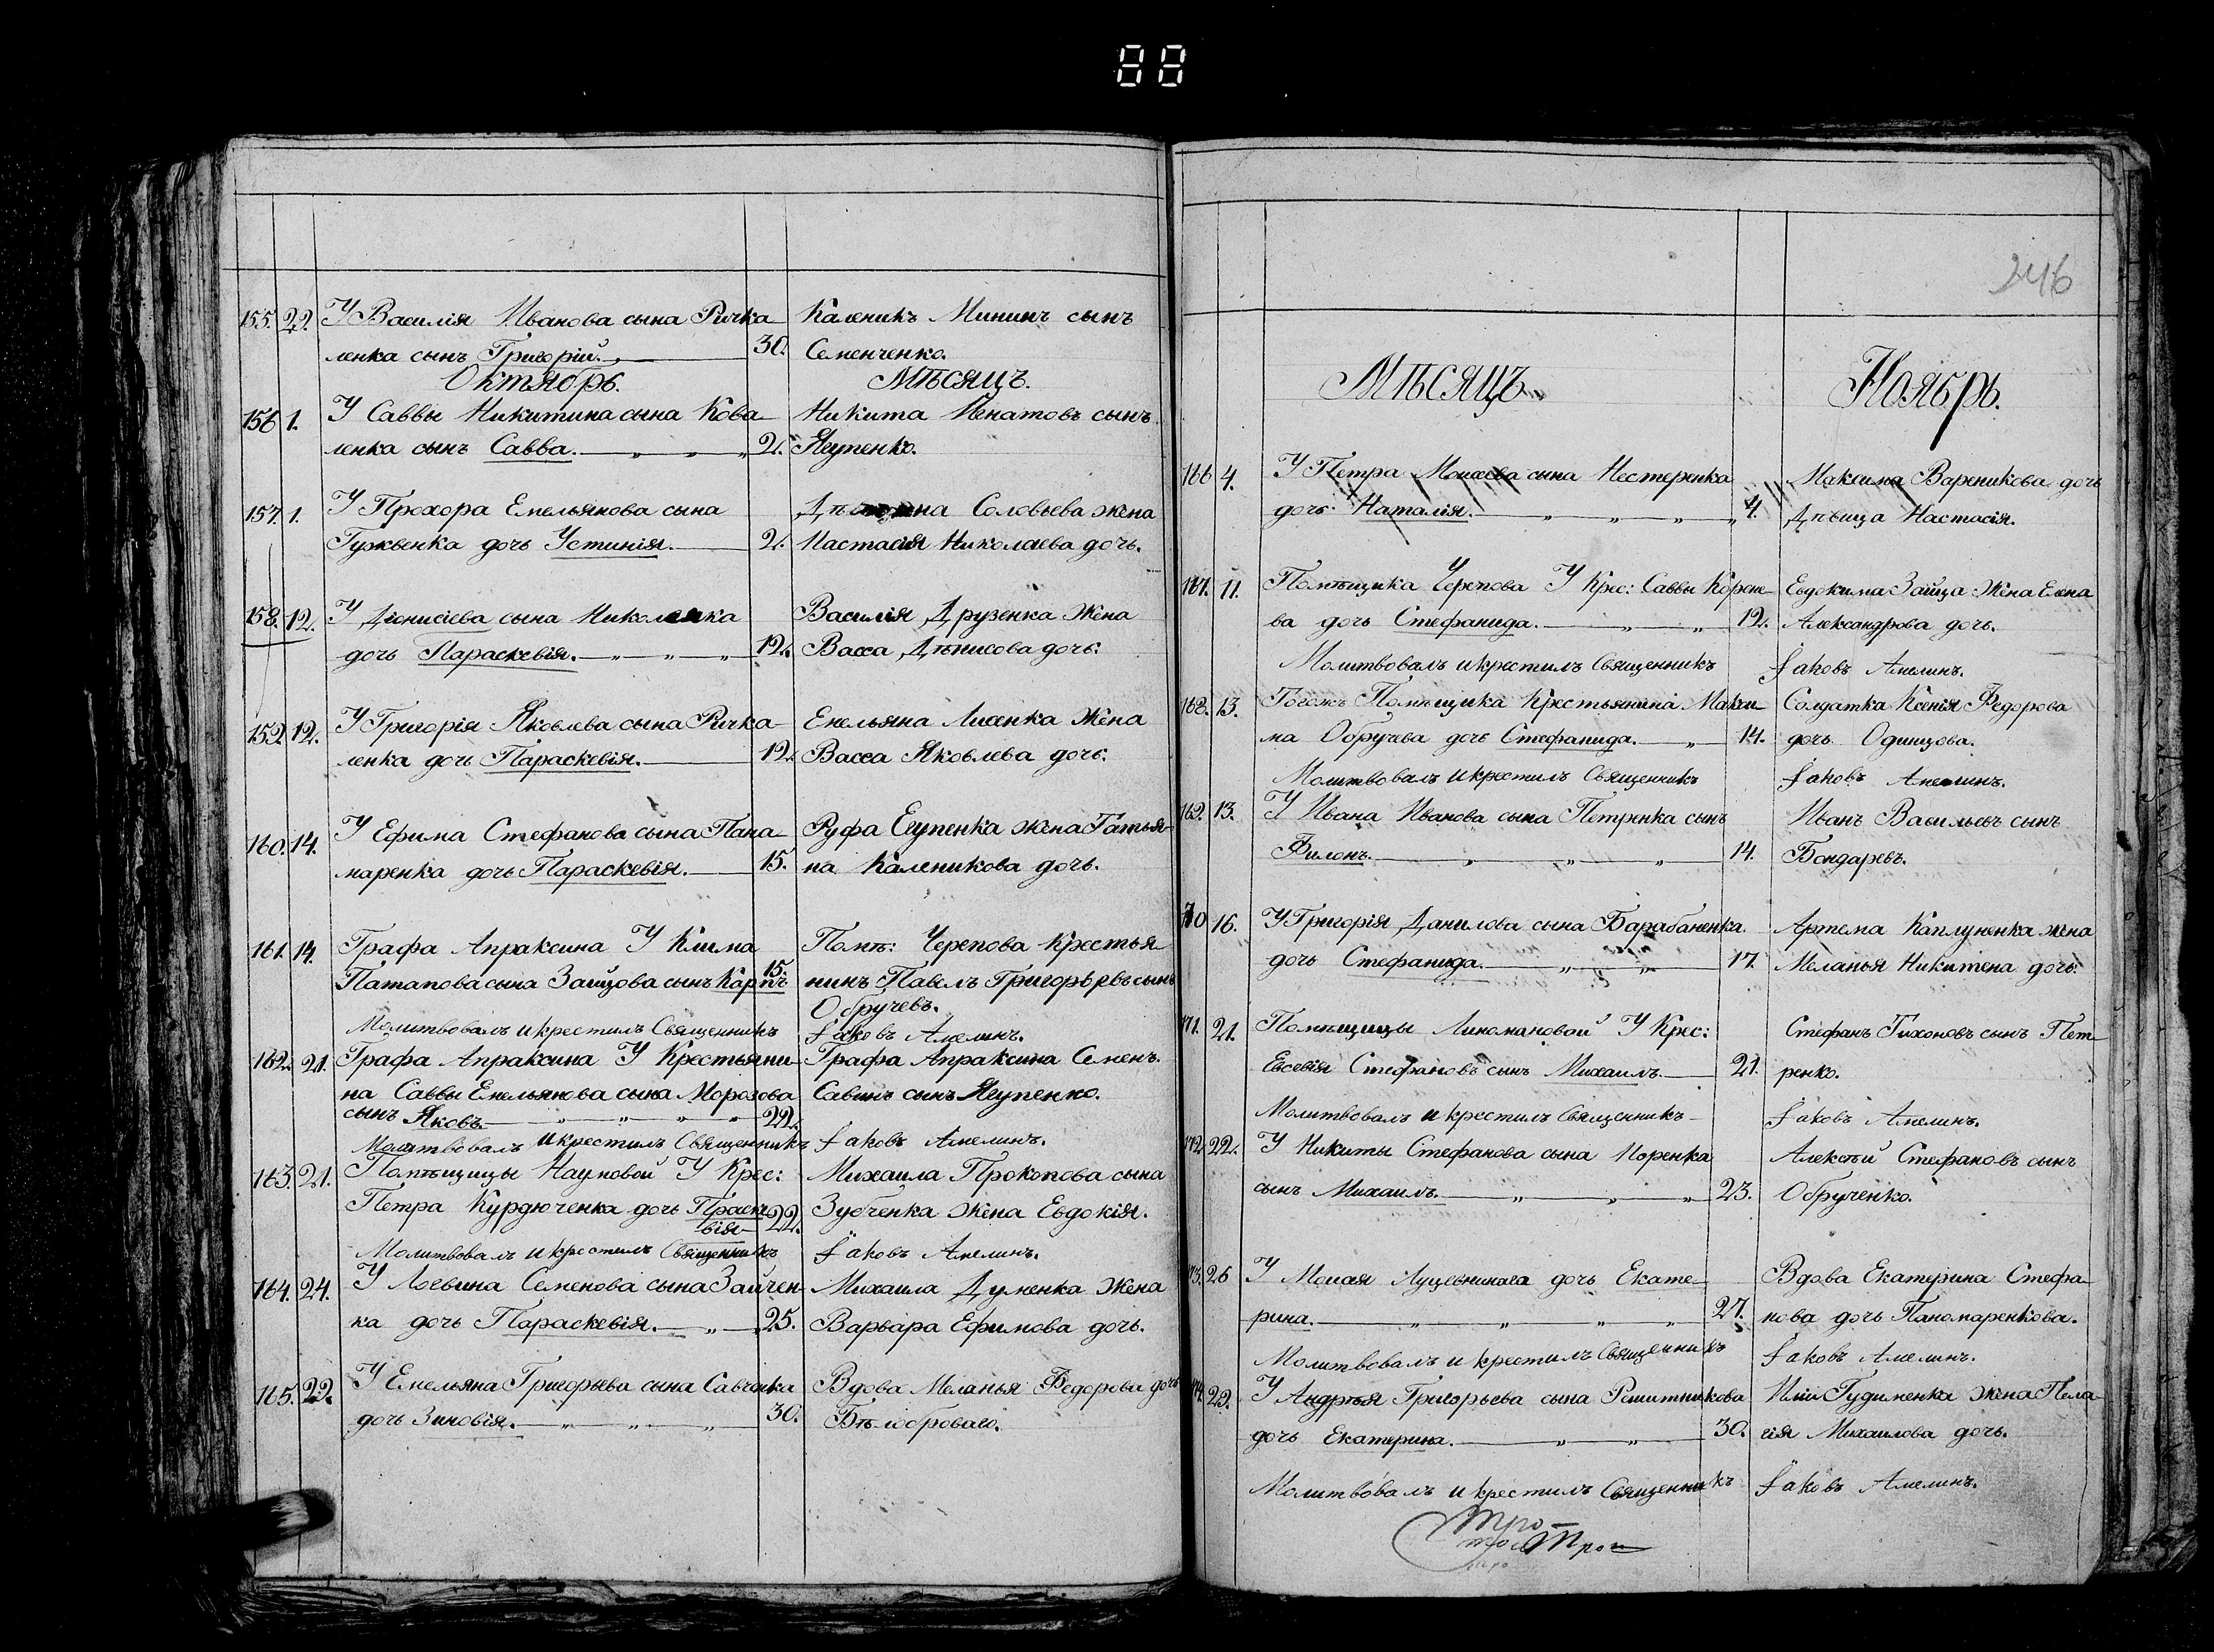 88
155. 22. У Василія Иванова сына Ричка- Каленикъ Мининъ сынъ
ленка сынъ Григорій. 30. Семенченко.
Октябрь. Мѣсяцъ.
156 1. У Саввы Никитина сына Кова- Никита Игнатовъ сынъ
ленка сынъ Савва. 2. Ягупенко.
157. 1. У Прохора Емельянова сына Соловьева жена
Гужвенка дочь Устинія. 2. Настасія Николаева дочь.
158. 12. У Діонисіева сына Николенка Василія Друзенка Жена
дочь Параскевія. 12. Васса Дѣнисова дочь.
159. 12. У Григорія Яковлева сына Ричка- Емельяна Лисенка Жена
ленка дочь Параскевія. 12. Васса Яковлева дочь.
160. 14. У Ефима Стефанова сына Пана- Руфа Егупенка жена Татья-
маренка дочь Параскевія. 15. на Каленикова дочь.
161. 14. Графа Апраксина У Клима Помѣ: Черепова Крестья-
Патапова сына Зайцова сынъ Карпъ 15. нинъ Павелъ Григорьевъ сынъ
Обручевъ.
Молитвовалъ и крестилъ Священникъ Іаковъ Амелинъ.
162. 21. Графа Апраксина У Крестьяни- Графа Апраксина Семенъ
на Саввы Емельянова сына Морозова Савинъ сынъ Ягупенко.
сынъ Яковъ. 22.
Молитвовалъ и крестилъ Священникъ Іаковъ Амелинъ.
163. 21. Помѣщицы Наумовой У Крес: Михаила Прокопова сына
Петра Курдюченка дочь Праске- 22. Зубченка жена Евдокія.
вія
Молитвовалъ и крестилъ Священникъ Іаковъ Амелинъ.
164. 24. У Логвина Семенова сына Зайчен- Михаила Думенка Жена
ка дочь Параскевія. 25. Варвара Ефимова дочь.
165. 22. У Емельяна Григорьева сына Савченка Вдова Меланья Федорова дочь
дочь Зиновія. 30. Бѣлоброваго.
246
Мѣсяцъ Ноябрь.
166 4. У Петра Моисеева сына Нестеренка Максима Вареникова дочь
дочь Наталія. 4. Дѣвица Настасія.
167. 11. Помѣщика Черепова У Крес: Саввы Корне- Евдокима Зайца Жена Елена
ва дочь Стефанида. 12. Александрова дочь.
Молитвовалъ и крестилъ Священникъ Іаковъ Амелинъ.
168. 13. Тогожъ Помѣщика Крестьянина Макси- Солдатка Ксенія Федорова
ма Обручева дочь Стефанида. 14. дочь Одинцова.
Молитвовалъ и крестилъ Священникъ Іаковъ Амелинъ.
169. 13. У Ивана Иванова сына Петренка сынъ Иванъ Васильевъ сынъ
Филонъ. 14. Бондаревъ.
170 16. У Григорія Данилова сына Барабаненка Артема Каплуненка жена
дочь Стефанида. 17. Меланья Никитена дочь.
171. 21. Помѣщицы Лихмановой У Крес: Стефанъ Тихоновъ сынъ Пет-
Евсевія Стефановъ сынъ Михаилъ. 21. ренко.
Молитвовалъ и крестилъ Священникъ Іаковъ Амелинъ.
172. 22. У Никиты Стефанова сына Норенка Алексѣй Стефановъ сынъ
сынъ Михаилъ. 23. Обрученко.
173. 26 У Моисея дочь Екате- Вдова Екатерина Стефа-
рина. 27. нова дочь Паномаренкова.
Молитвовалъ и крестилъ Священникъ Іаковъ Амелинъ.
174. 29. У Андрѣя Григорьева сына Решитникова Иліи Гудименка жена Пела-
дочь Екатерина. 30. гія Михаилова дочь.
Молитвовалъ и крестилъ Священникъ Іаковъ Амелинъ.